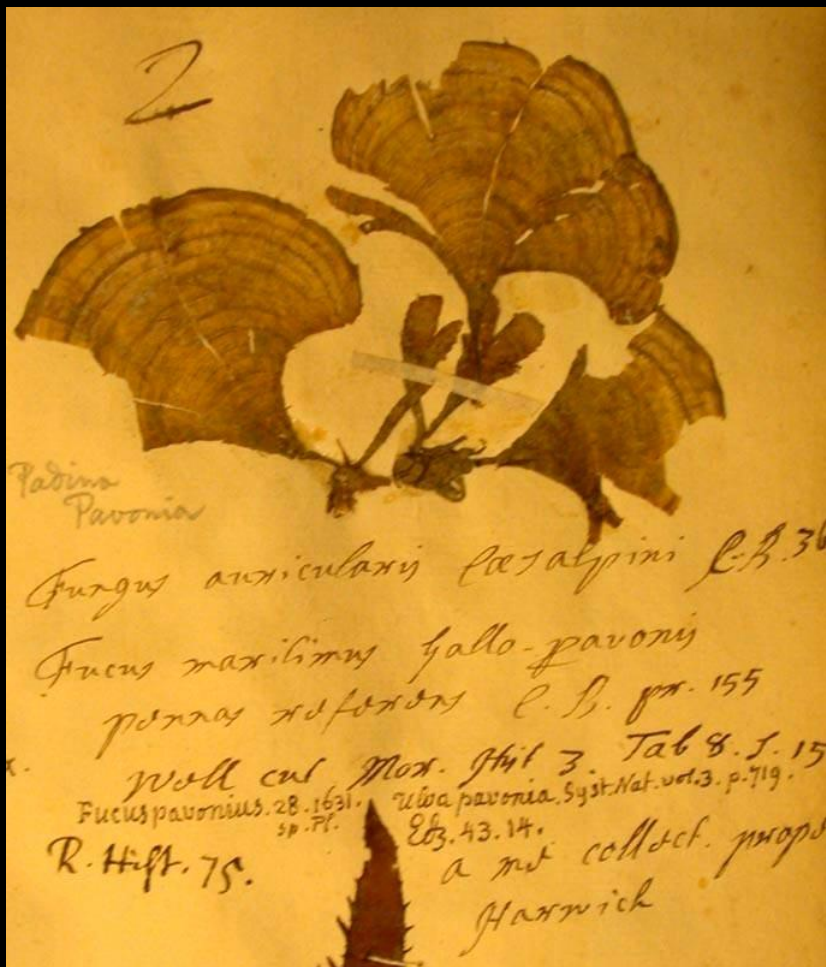 2
Padina
Pavonia
Fungus auricularis Cæsalpini C.B. 36
Fucus maritimus Gallo-pavonis
pennas referens C. B. pr. 155
well cut Mor. Hist 3. Tab 8. S. 15
Fucus pavonius. 28. 1631. Ulva pavonia. Syst. Nat. vol. 3. p. 719.
sp. Pl. 43. 14.
R. Hist. 75. a me collect. prope
Harwich